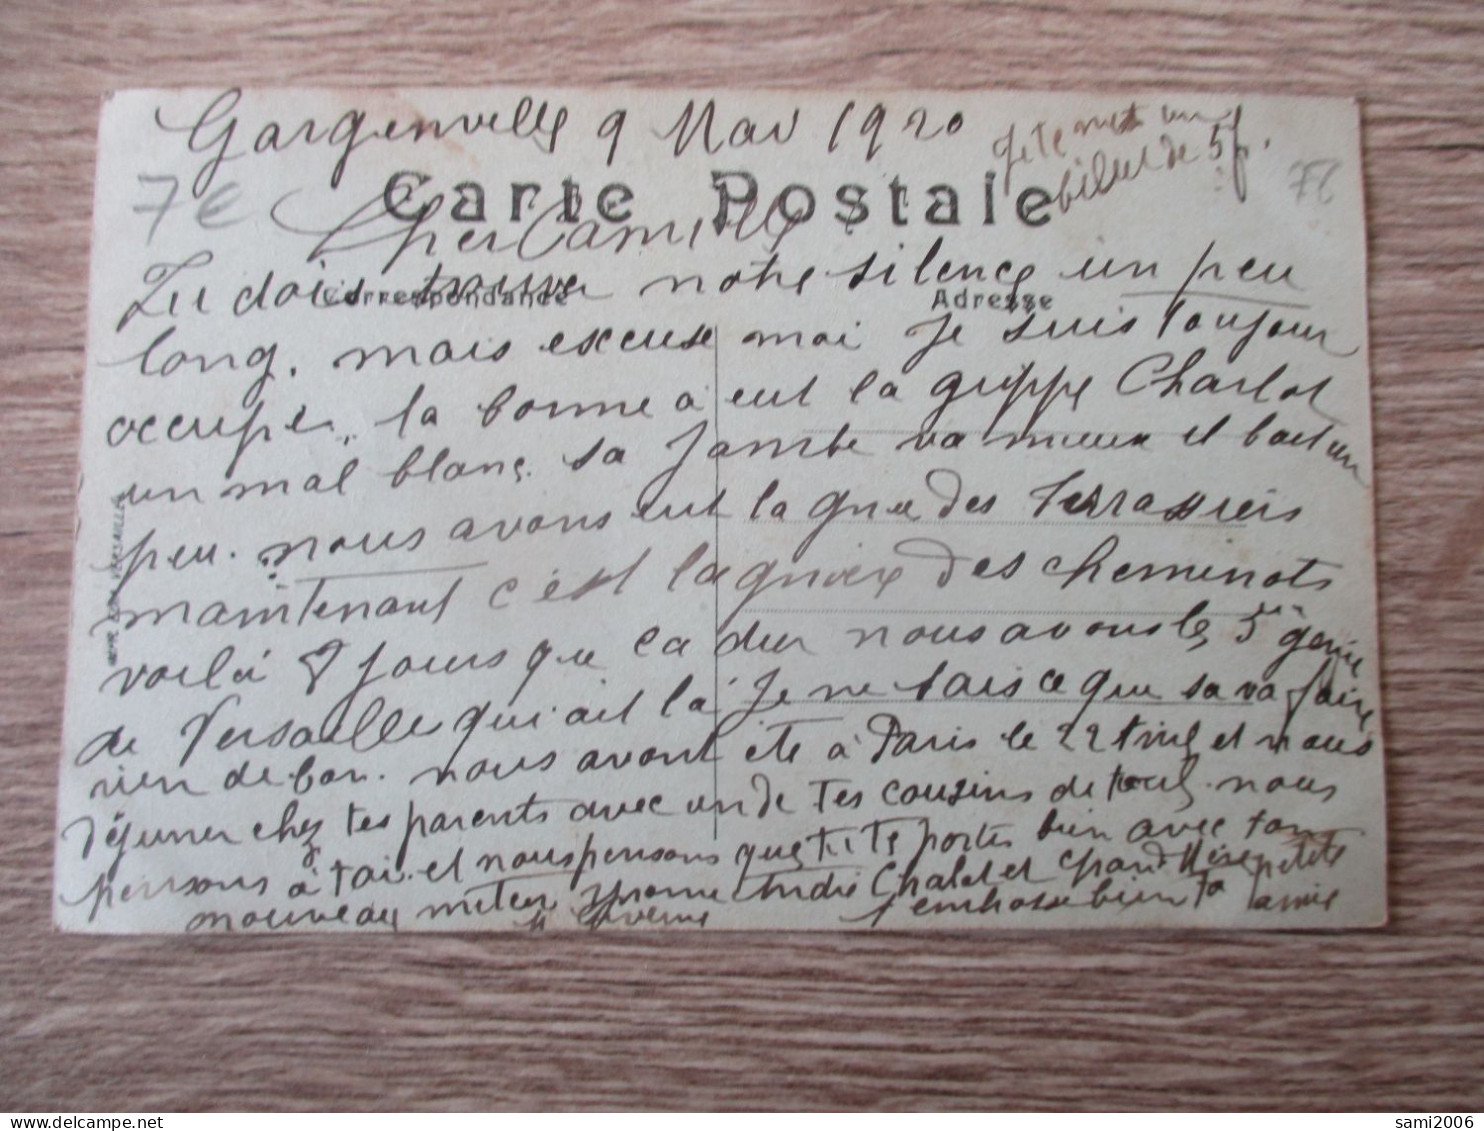 Gargenville 9 Mai 1920
Je te met un
billet de 5f.
7€
78
Carte Postale
Cher Camille
Correspondance
Adresse
Tu dois trouver notre silence un peu
long. mais excuse moi je suis toujour
occuper, la bonne a eut la grippe Charlot
un mal blanc. sa jambe va mieux et boit un
peu. nous avons eut la grve des terrassiers
maintenant c'est la grveve des cheminots
voila 8 jours que ca dur nous avons le 5e génie
de Versaille qui ait là je ne sais ce que sa va faire
rien de bon. nous avont été à Paris le 22 et nous
déjeuner chez tes parents avec un de tes cousins de toul. nous
pensons à toi et nous pensons que tu te portes bien avec ton
nouveau metier Yvonne André Chalot et grand Mère
t'embrasse bien ta petite
amie
Yvonne
VERSAILLES
sami2006